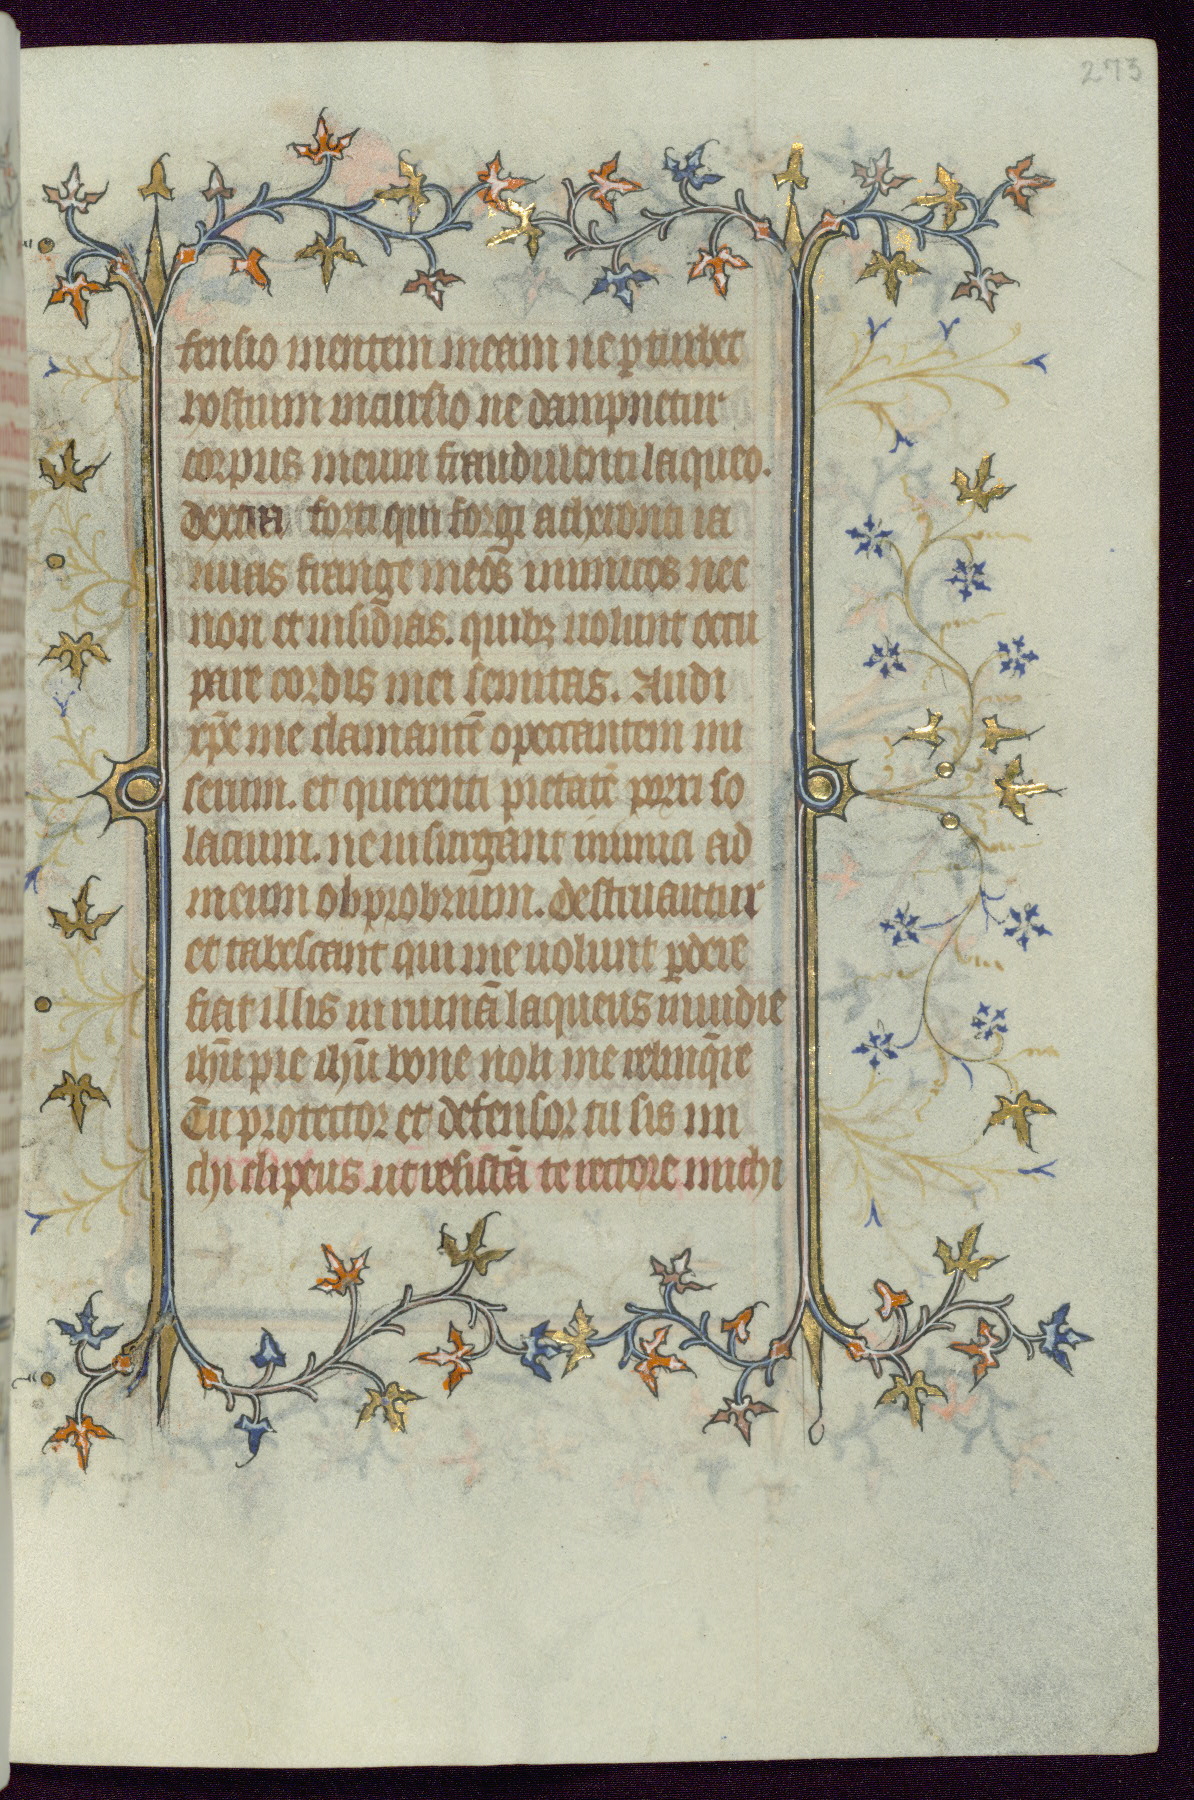 273
fensio mentem meam ne p̱turbet
hostium incursio ne dampnetur
corpus meum fraudulenti laqueo.
dextra forti qui forgi acheronti ia
nuas frange meos inimicos nec
non et insidias. quibꝫ uolunt occu
pare cordis mei semitas. Audi
xp̄e me clamantē opectantem mi
serum. et querenti pietatē porri so
lacium. ne insurgant inimici ad
meum obprobrium. destruantur
et tabescant qui me uolunt ꝑdere
fiat illis in ruinā laqueus inuidie
ihū pie ihū bone noli me relinq̄re
Tu protector et defensor tu sis mi
chi clipeus ut resistā te rectore michi